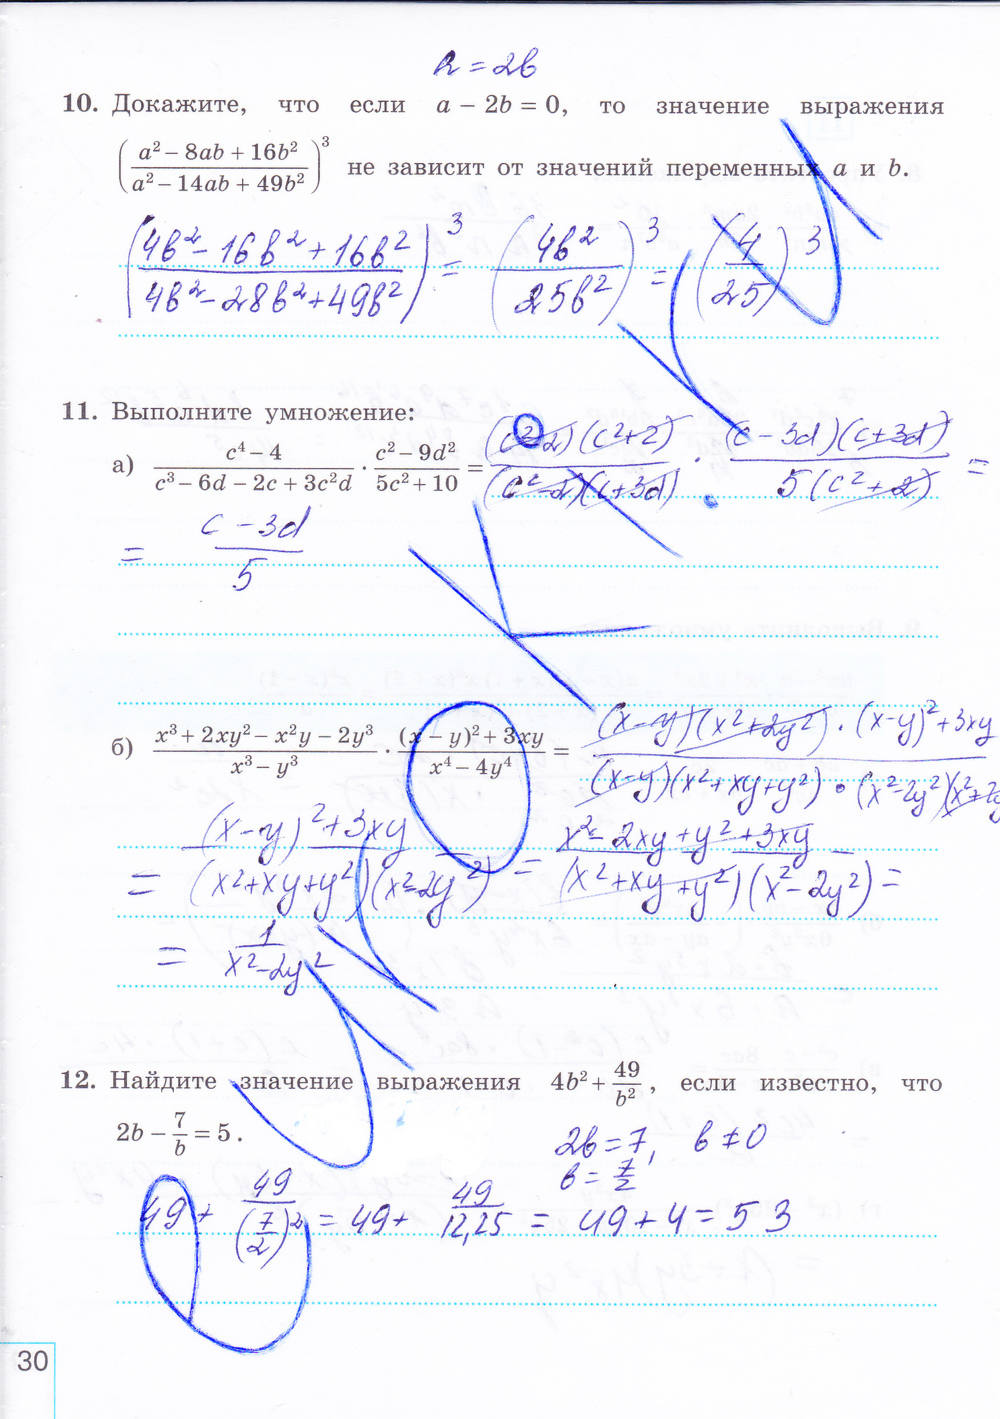 a = 2b
10. Докажите, что если a − 2b = 0, то значение выражения
((a² − 8ab + 16b²)/(a² − 14ab + 49b²))³ не зависит от значений переменных a и b.
((4b² − 16b² + 16b²)/(4b² − 28b² + 49b²))³ = (4b²/25b²)³ = (4/25)³
11. Выполните умножение:
а) (c⁴ − 4)/(c³ − 6d − 2c + 3c²d) · (c² − 9d²)/(5c² + 10) = ((c² − 2)(c² + 2))/((c² − 2)(c + 3d)) · ((c − 3d)(c + 3d))/(5(c² + 2)) =
= (c − 3d)/5
б) (x³ + 2xy² − x²y − 2y³)/(x³ − y³) · ((x − y)² + 3xy)/(x⁴ − 4y⁴) = ((x − y)(x² + 2y²) · (x − y)² + 3xy)/((x − y)(x² + xy + y²) · (x² − 2y²)(x² + 2y
= ((x − y)² + 3xy)/((x² + xy + y²)(x² − 2y²)) = (x² − 2xy + y² + 3xy)/((x² + xy + y²)(x² − 2y²)) =
= 1/(x² − 2y²)
12. Найдите значение выражения 4b² + 49/b², если известно, что
2b − 7/b = 5.
2b = 7, b ≠ 0
b = 7/2
49 + 49/(7/2)² = 49 + 49/12,25 = 49 + 4 = 53
30